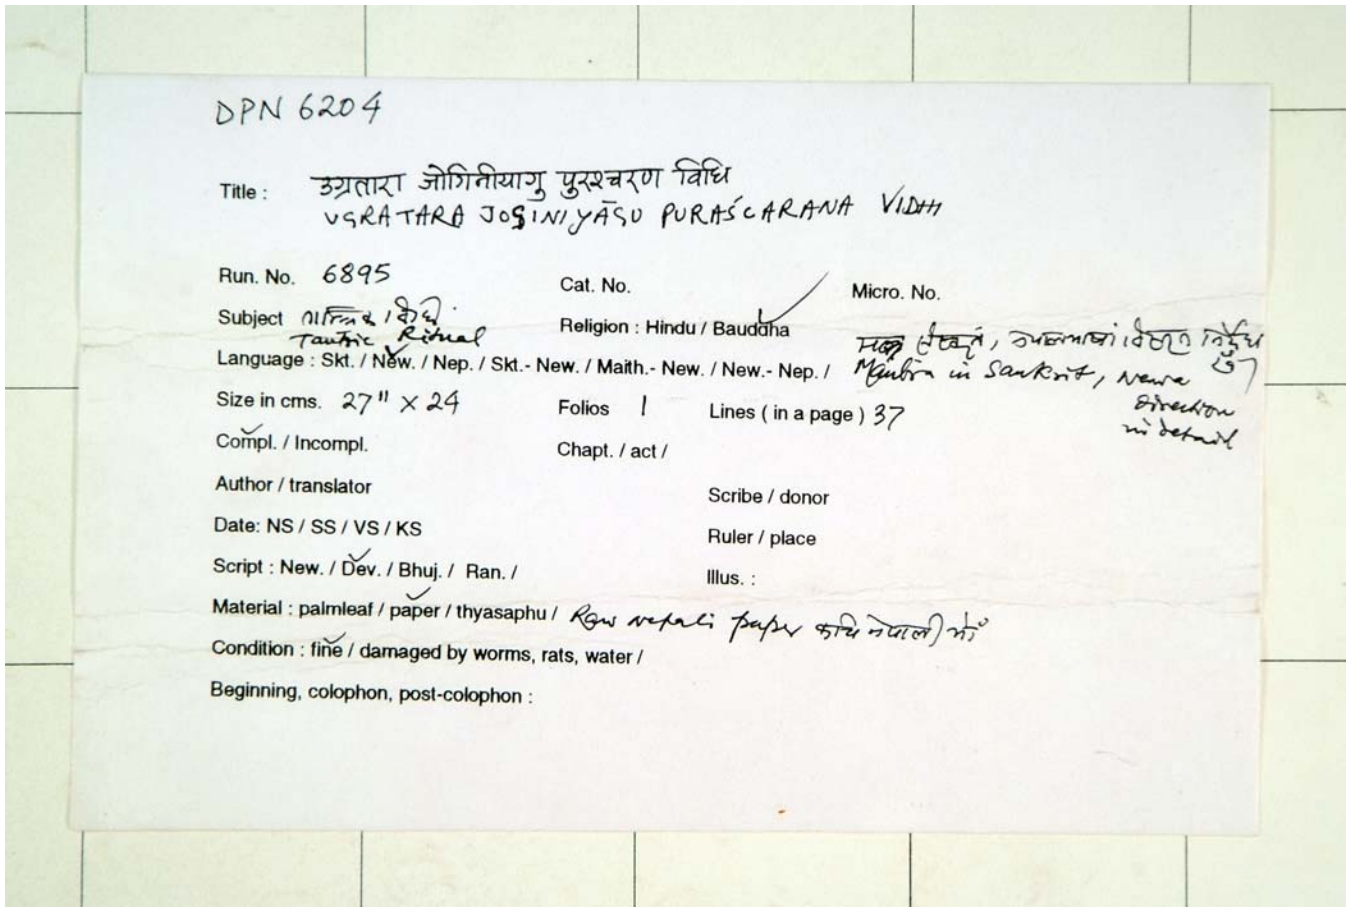 DPN 6204
Title : उग्रतारा जोगिनीयागु पुरश्चरण विधि
UGRATARA JOGINIYĀGU PURAŚCARANA VIDHI
Run. No. 6895 Cat. No. Micro. No.
Subject तान्त्रिक विधि Religion : Hindu / Bauddha
Tantric Ritual संस्कृत, नेपालभाषां विस्तृत निर्देश
Language : Skt. / New. / Nep. / Skt.- New. / Maith.- New. / New.- Nep. / Mantra in Sanskrit, Newa
Direction
in detail
Size in cms. 27" X 24 Folios 1 Lines ( in a page ) 37
Compl. / Incompl. Chapt. / act /
Author / translator Scribe / donor
Date: NS / SS / VS / KS Ruler / place
Script : New. / Dev. / Bhuj. / Ran. / Illus. :
Material : palmleaf / paper / thyasaphu / Raw nepali paper नेपाली भों
Condition : fine / damaged by worms, rats, water /
Beginning, colophon, post-colophon :